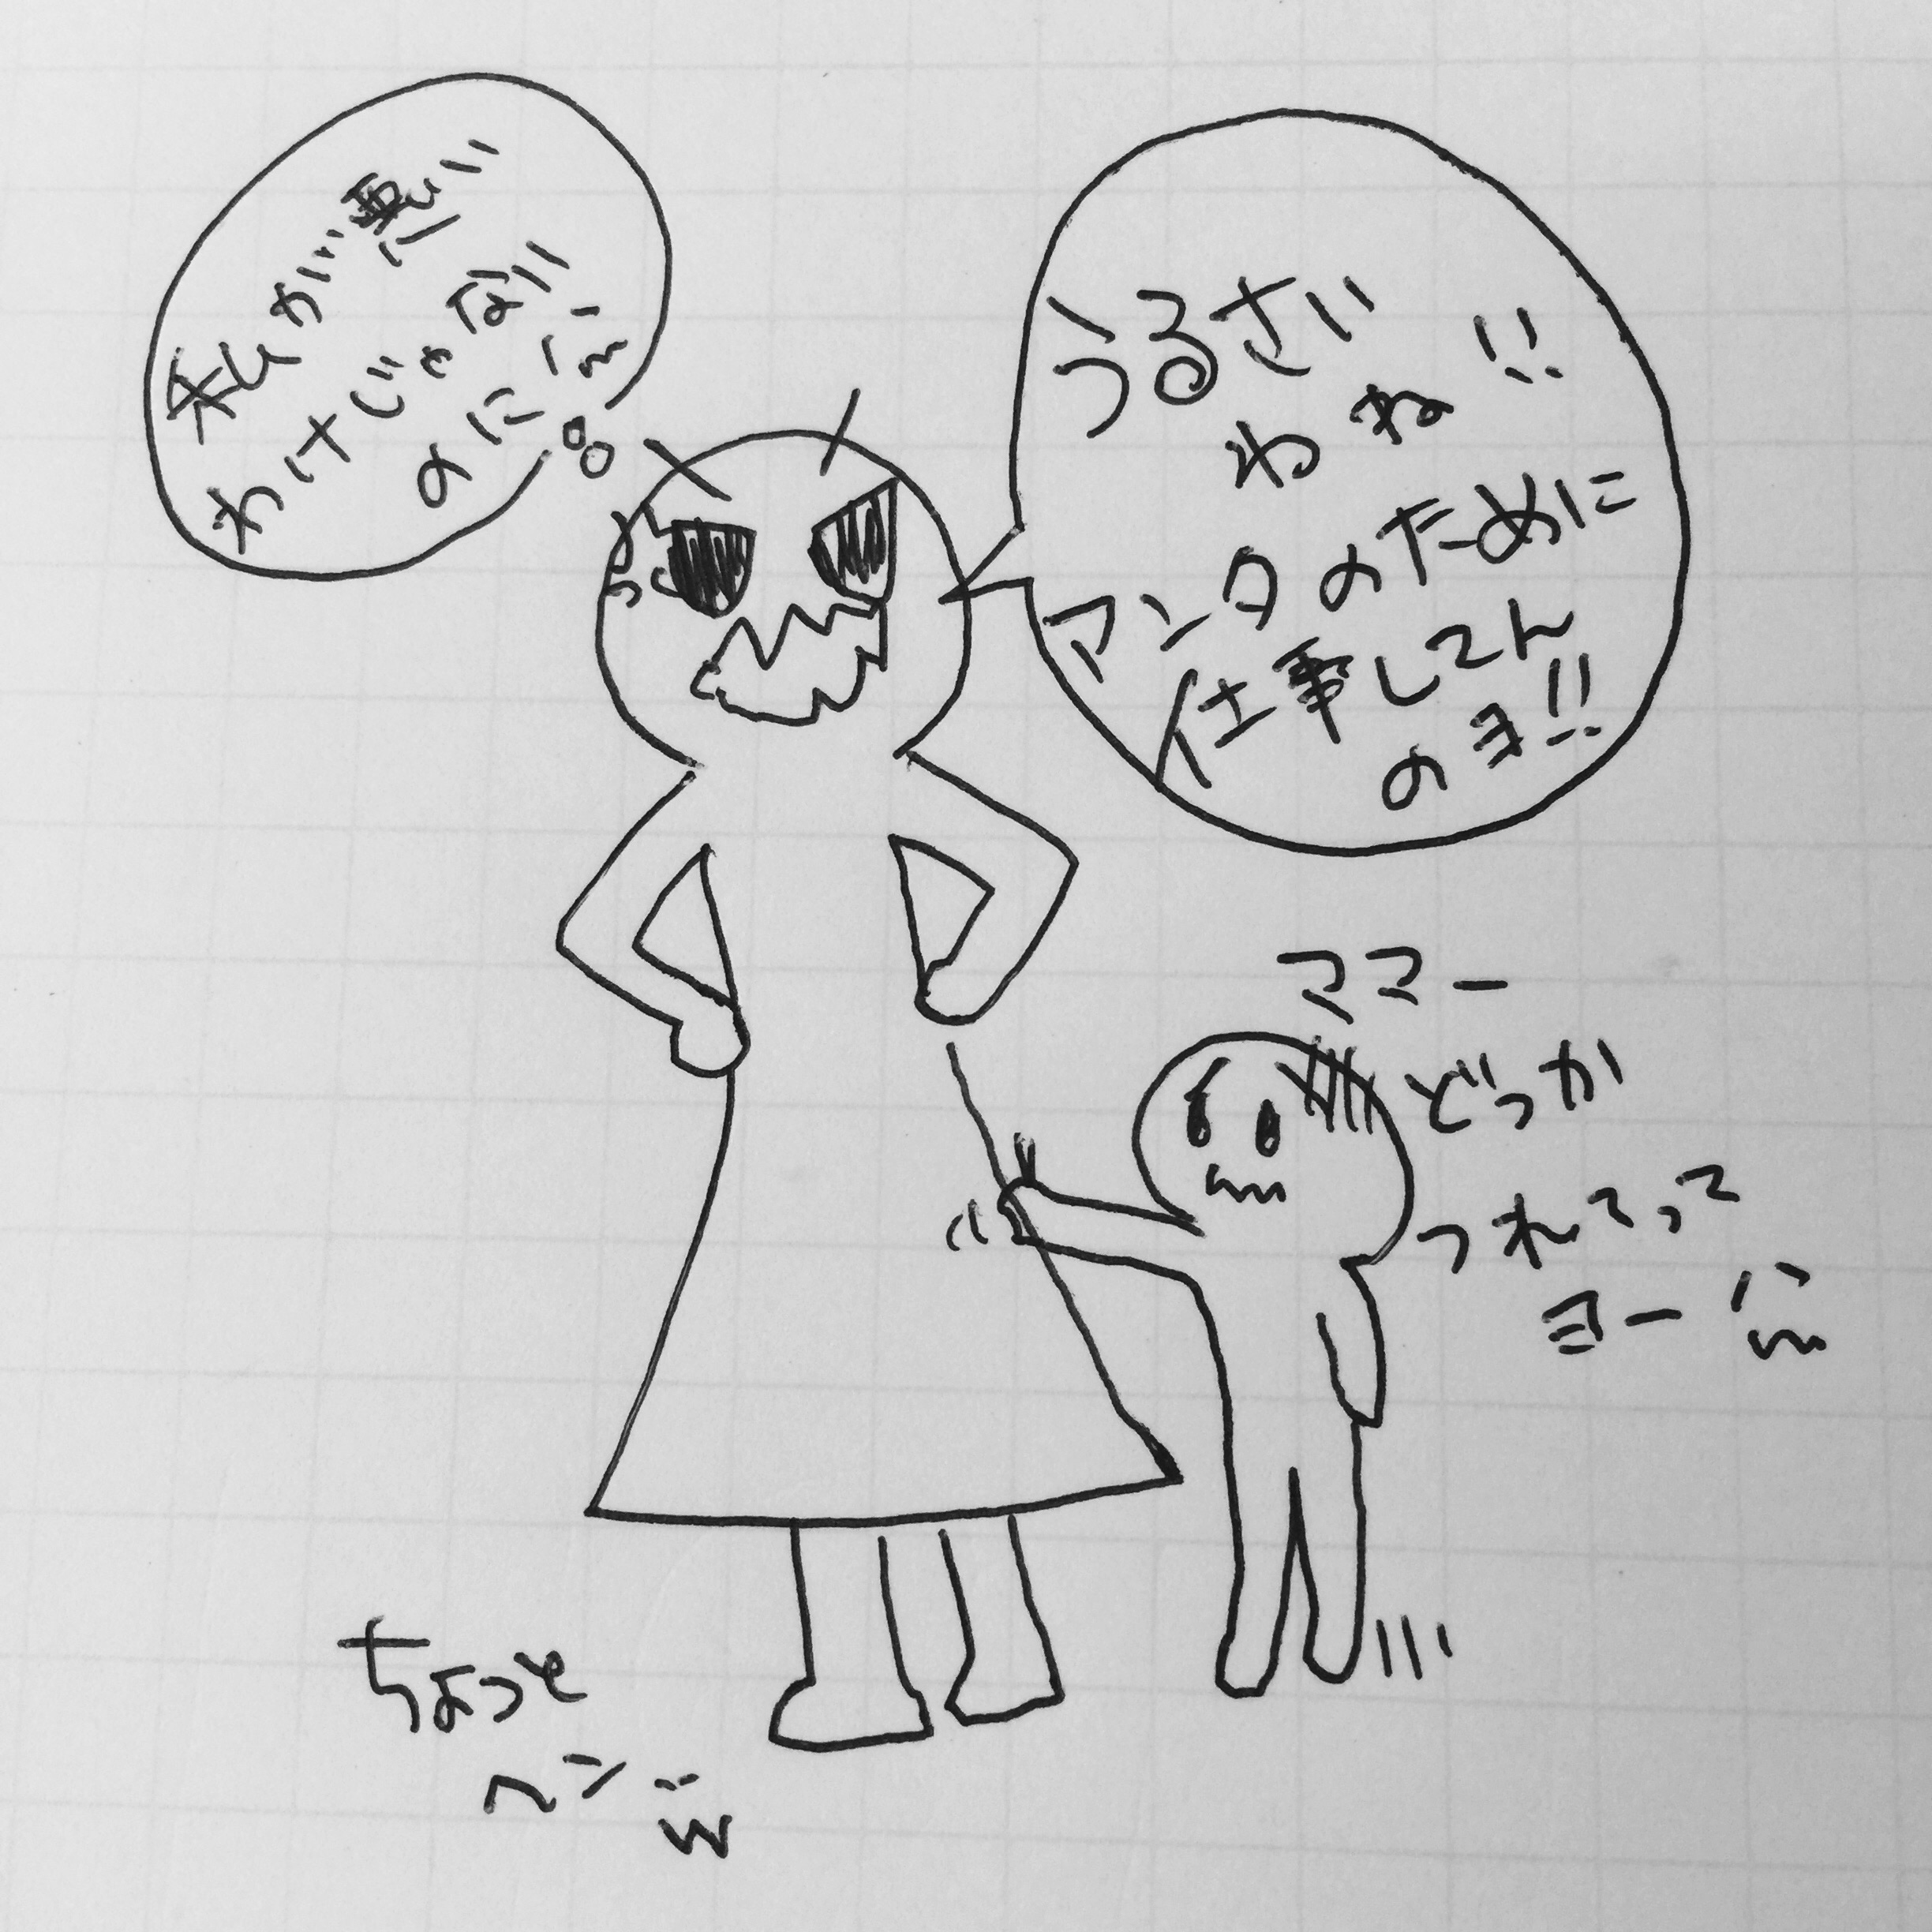 私が悪い
わけじゃない
のに
うるさい
わね!!
アンタのために
仕事してん
のヨ!!
ママー
どっか
つれてって
ヨー
ちょっと
ヘン